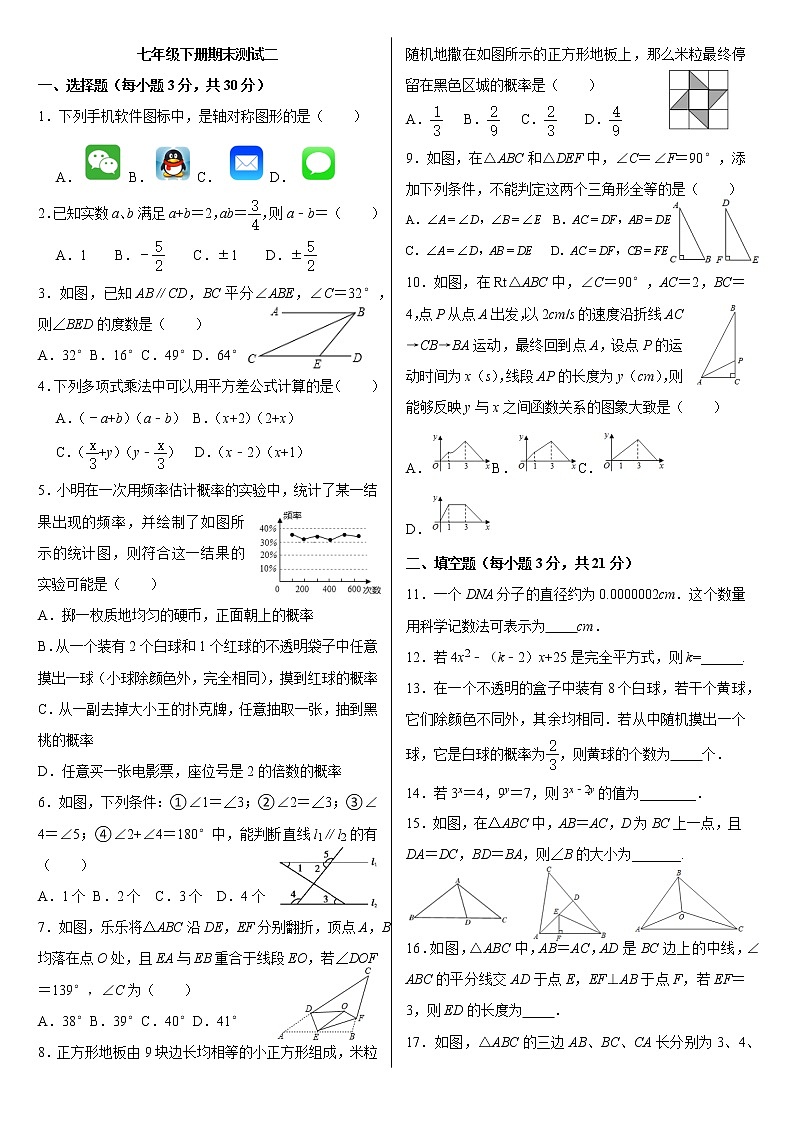 七年级下册期末测试二
一、选择题（每小题3分，共30分）
1．下列手机软件图标中，是轴对称图形的是（　　）
A． B． C． D．
2.已知实数a、b满足a+b＝2,ab＝3/4,则a﹣b＝（　　）
A．1 B．﹣5/2 C．±1 D．±5/2
3．如图，已知AB∥CD，BC平分∠ABE，∠C＝32°，
则∠BED的度数是（　　）
A．32° B．16° C．49° D．64°
A B C E D
4.下列多项式乘法中可以用平方差公式计算的是（　　）
A．(﹣a+b)（a﹣b） B．(x+2)(2+x)
C．(x/3+y)(y﹣x/3) D．(x﹣2)(x+1)
5．小明在一次用频率估计概率的实验中，统计了某一结
果出现的频率，并绘制了如图所
示的统计图，则符合这一结果的
实验可能是（　　）
频率
40%
30%
20%
10%
0 200 400 600 次数
A．掷一枚质地均匀的硬币，正面朝上的概率
B.从一个装有2个白球和1个红球的不透明袋子中任意
摸出一球(小球除颜色外，完全相同)，摸到红球的概率
C．从一副去掉大小王的扑克牌，任意抽取一张，抽到黑
桃的概率
D．任意买一张电影票，座位号是2的倍数的概率
6．如图，下列条件：①∠1＝∠3；②∠2＝∠3；③∠
4＝∠5；④∠2+∠4＝180°中，能判断直线l1∥l2的有
（　　）
A．1个 B．2个 C．3个 D．4个
5 1 2 l₁ 4 3 l₂
7．如图，乐乐将△ABC沿DE，EF分别翻折，顶点A，B
均落在点O处，且EA与EB重合于线段EO，若∠DOF
＝139°，∠C为（　　）
A．38° B．39° C．40° D．41°
C D O F A E B
8．正方形地板由9块边长均相等的小正方形组成，米粒
随机地撒在如图所示的正方形地板上，那么米粒最终停
留在黑色区域的概率是（　　）
A．1/3 B．2/9 C．2/3 D．4/9
9．如图，在△ABC和△DEF中，∠C＝∠F＝90°，添
加下列条件，不能判定这两个三角形全等的是（　　）
A．∠A＝∠D，∠B＝∠E B．AC＝DF，AB＝DE
C．∠A＝∠D，AB＝DE D．AC＝DF，CB＝FE
A C B D F E
10．如图，在Rt△ABC中，∠C＝90°，AC＝2，BC＝
4,点P从点A出发以2cm/s的速度沿折线AC
→CB→BA运动，最终回到点A，设点P的运
动时间为x（s）,线段AP的长度为y（cm）,则
能够反映y与x之间函数关系的图象大致是（　　）
B P A C
A． y O 1 3 x B． y O 1 3 x C． y O 1 3 x
D． y O 1 3 x
二、填空题（每小题3分，共21分）
11．一个DNA分子的直径约为0.0000002cm．这个数量
用科学记数法可表示为____cm．
12．若4x²﹣（k﹣2）x+25是完全平方式，则k=_____.
13．在一个不透明的盒子中装有8个白球，若干个黄球，
它们除颜色不同外，其余均相同．若从中随机摸出一个
球，它是白球的概率为2/3，则黄球的个数为____个．
14．若3ˣ＝4，9ʸ＝7，则3ˣ⁻²ʸ的值为_______．
15．如图，在△ABC中，AB＝AC，D为BC上一点，且
DA＝DC，BD＝BA，则∠B的大小为______.
A B D C
C D E A F B
B O A C
16.如图,△ABC中,AB＝AC,AD是BC边上的中线,∠
ABC的平分线交AD于点E，EF⊥AB于点F，若EF＝
3，则ED的长度为____．
17．如图，△ABC的三边AB、BC、CA长分别为3、4、